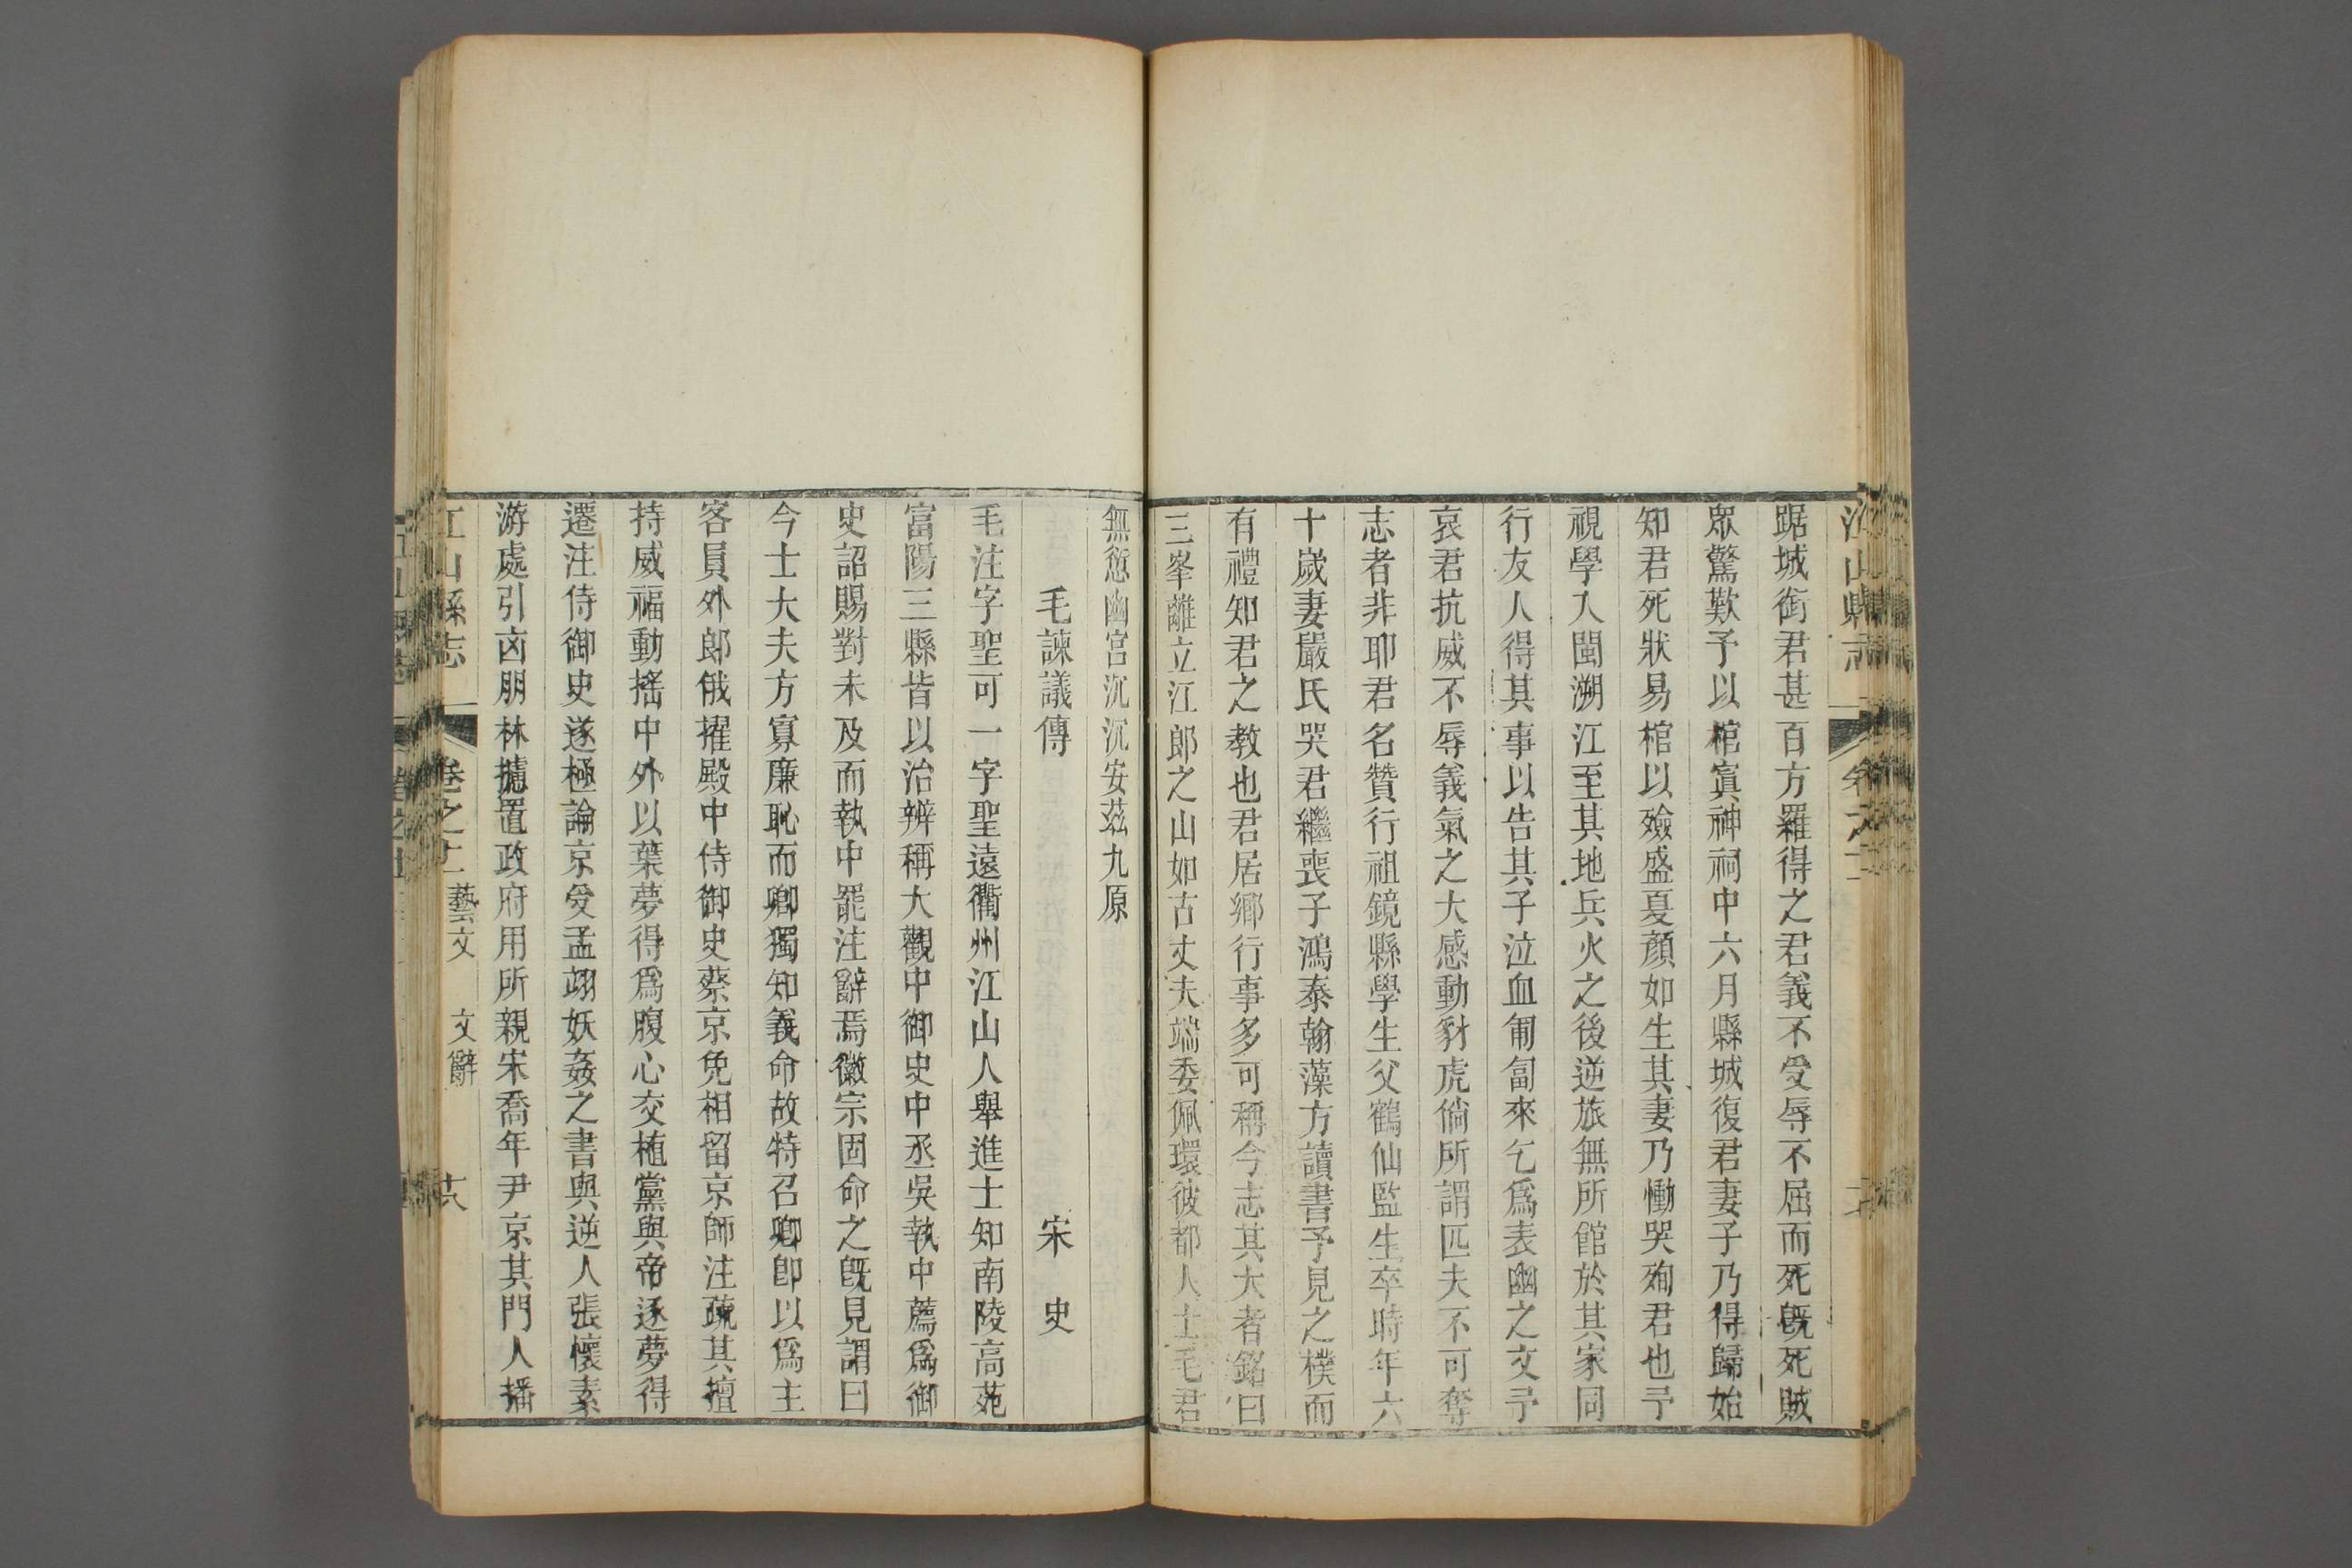 江山縣志 卷之十一
踞城銜君甚百方羅得之君義不受辱不屈而死旣死賊
眾驚歎予以棺寘神祠中六月縣城復君妻子乃得歸始
知君死狀易棺以殮盛夏顏如生其妻乃慟哭殉君也予
視學入閩溯江至其地兵火之後逆旅無所館於其家同
行友人得其事以告其子泣血匍匐來乞爲表幽之文予
哀君抗威不辱義氣之大感動豺虎倘所謂匹夫不可奪
志者非耶君名贊行祖鏡縣學生父鶴仙監生卒時年六
十歲妻嚴氏哭君繼喪子鴻泰翰藻方讀書予見之樸而
有禮知君之教也君居鄉行事多可稱今志其大者銘曰
三峯離立江郎之山如古丈夫端委佩環彼都人士毛君
無愆幽宮沉沉安茲九原
毛諫議傳 宋史
毛注字聖可一字聖遠衢州江山人舉進士知南陵高苑
富陽三縣皆以治辨稱大觀中御史中丞吳執中薦爲御
史詔賜對未及而執中罷注辭焉徽宗固命之旣見謂曰
今士大夫方寡廉恥而卿獨知義命故特召卿卽以爲主
客員外郎俄擢殿中侍御史蔡京免相留京師注疏其擅
持威福動搖中外以葉夢得爲腹心交植黨與帝逐夢得
遷注侍御史遂極論京受孟翊妖姦之書與逆人張懷素
游處引凶朋林攄置政府用所親宋喬年尹京其門人播
江山縣志 卷之十一 藝文 文辭 十八